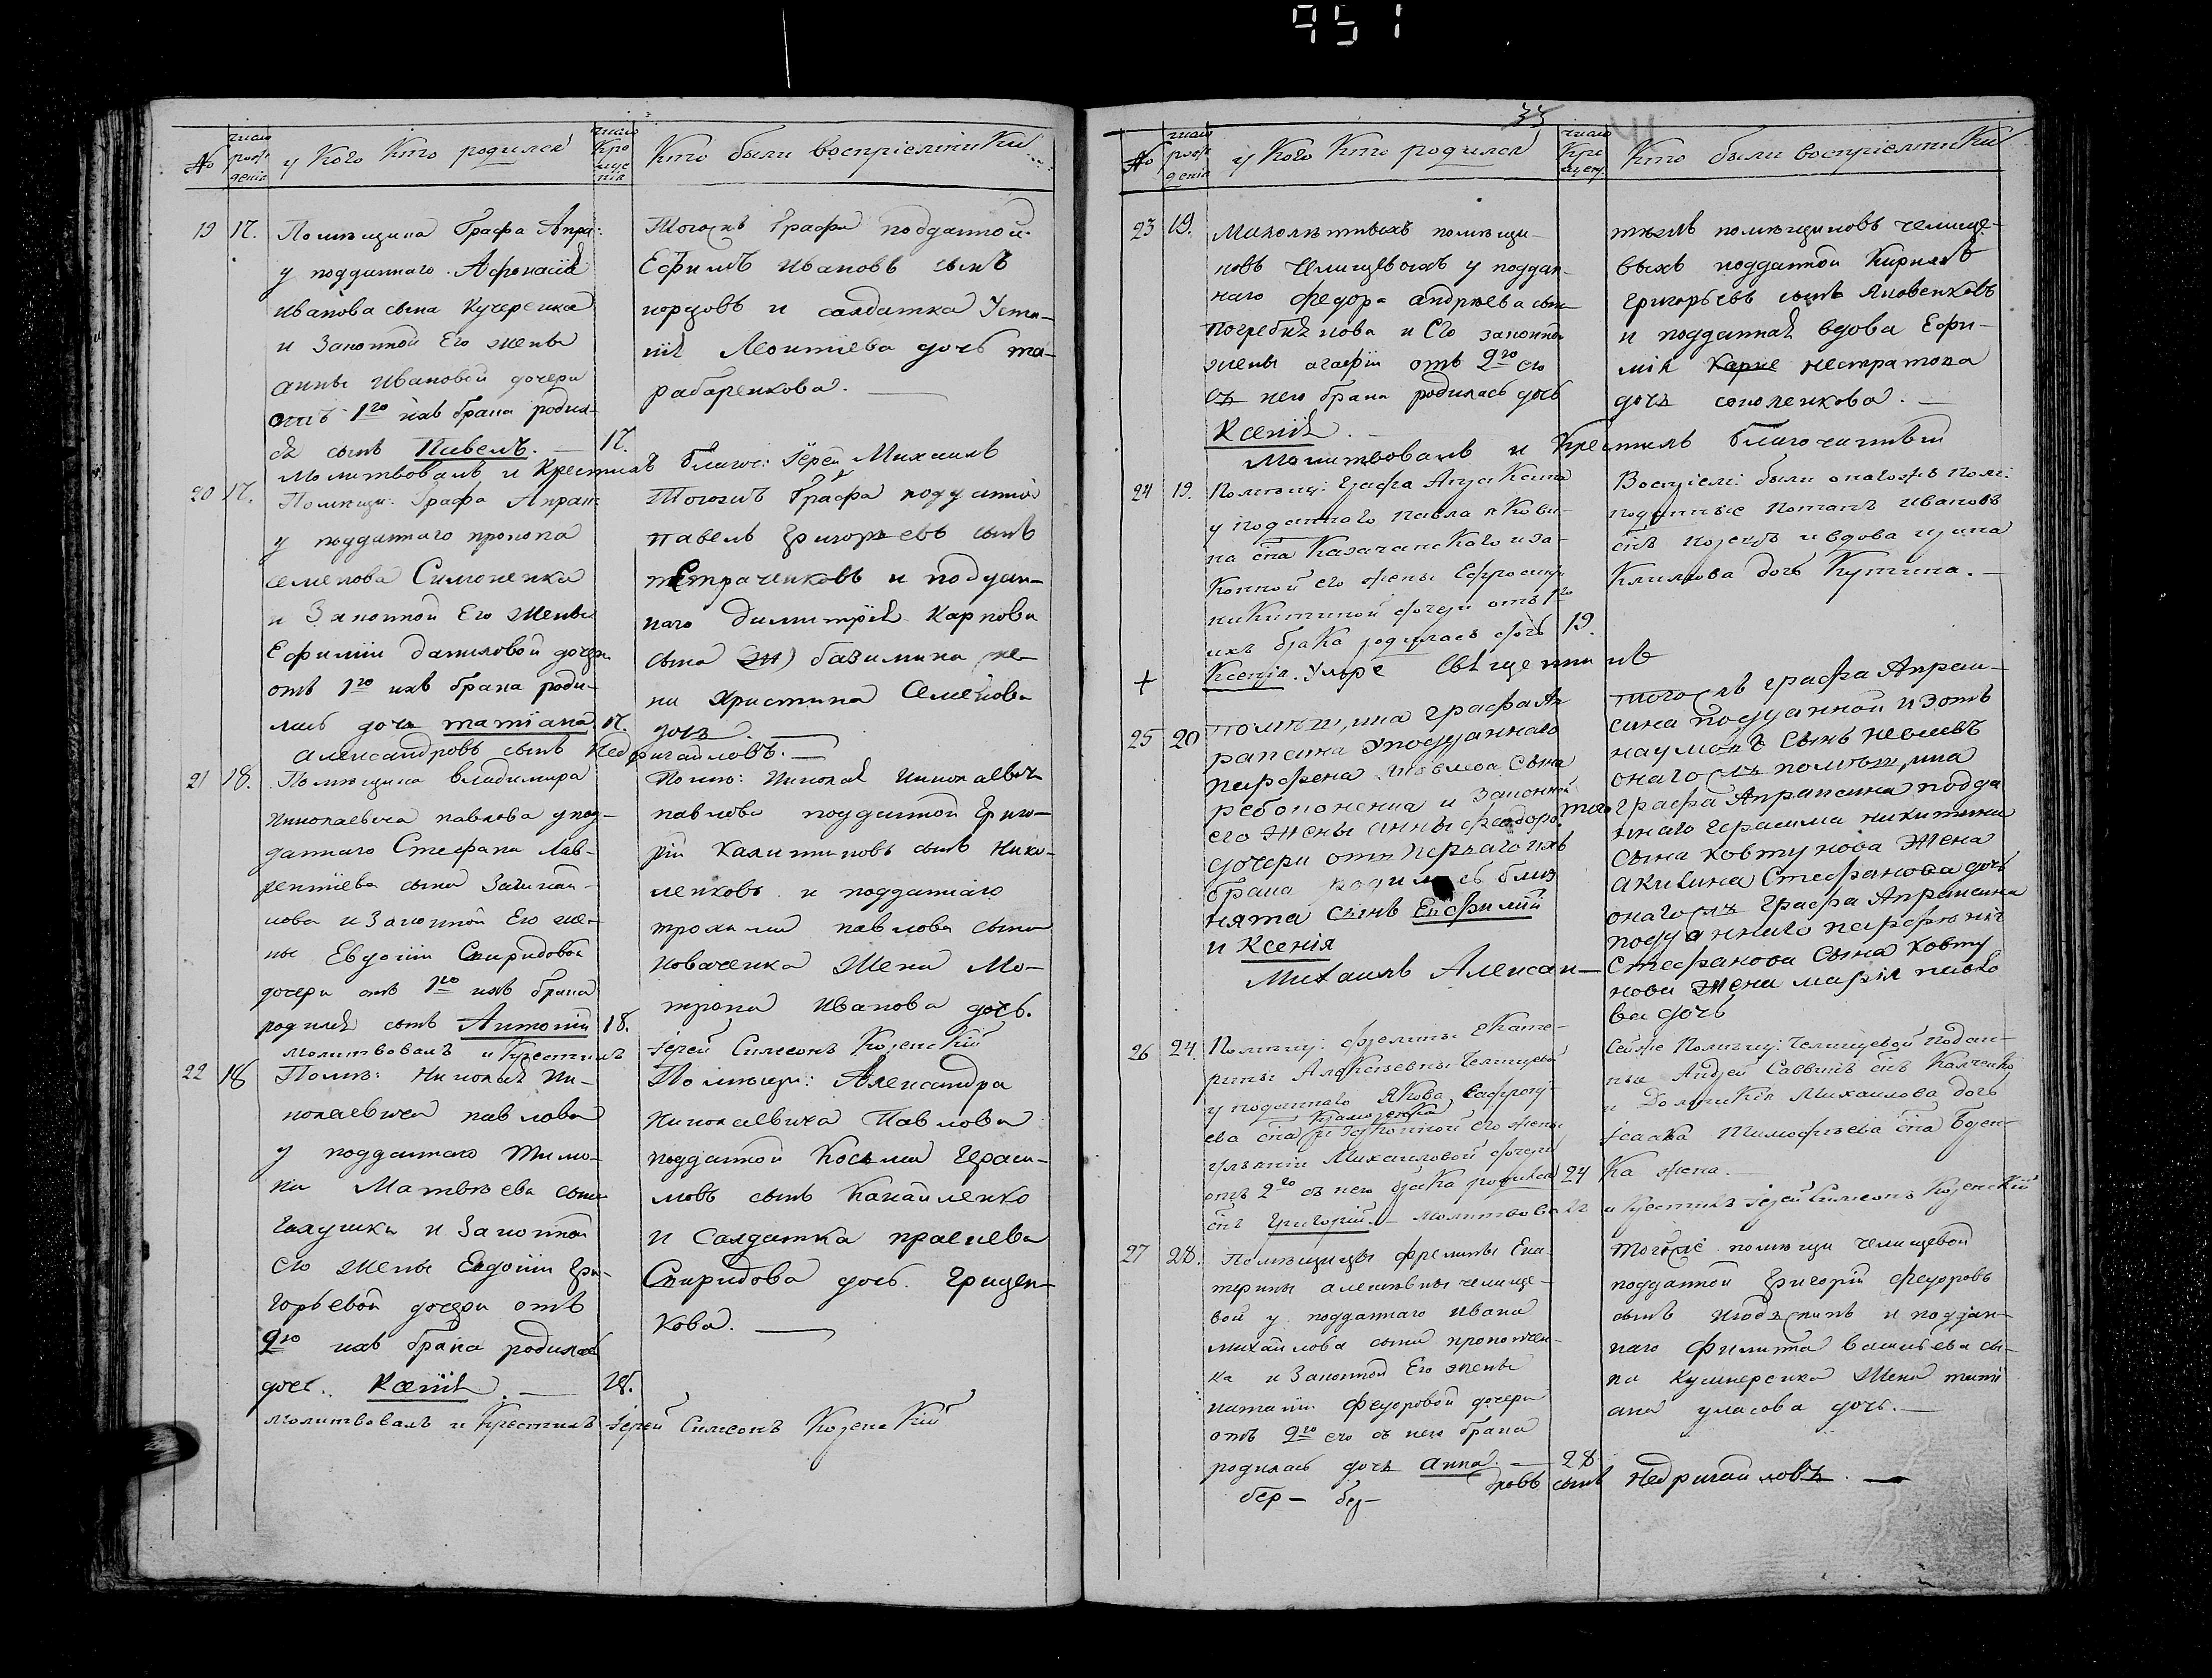 951
№
число рождения
у кого кто родился
число крещения
Кто были воспрiемники
19
17.
Помѣщика Графа Апра:
у подданнаго Афонасiя
Иванова сына Кучеренка
и Законной Его жены
анны Ивановой дочери
отъ 1го ихъ брака родил-
ся сынъ Павелъ. —
17.
Тогожъ Графа подданной
Ефимъ Ивановъ сынъ
и салдатка Усти-
нiя Леонтiева дочь та-
рабаренкова. —
Молитвовалъ и Крестилъ благоч: Iерей Михаилъ
20
17.
Помѣщи: Графа Апракс:
у подданнаго прокопа
семенова Симоненка
и Законной Его жены
Ефимiи даниловой дочери
отъ 1го ихъ брака роди-
лась дочь татiана
17.
Тогожъ Графа подданной
павелъ григорьевъ сынъ
петраченковъ и поддан-
наго димитрiя Карпова
сына базилина же-
на Христина Семенова
дочь. —
александровъ сынъ Недригайловъ. —
21
18.
Помѣщика владимира
Николаевича павлова у под-
даннаго Стефана Лав-
рентiева сына
нова и Законной Его же-
ны Евдокiи Спиридовой
дочери отъ 1го ихъ брака
родился сынъ Антонiй
18.
Помѣ: Николая Николаевича
павлова подданной Григо-
рiй Калитиновъ сынъ Нико-
ленковъ и подданнаго
трохима павлова сына
Коваченка жена Мо-
трона Иванова дочь.
молитвовалъ и Крестилъ Iерей Симеонъ Козенскiй
22
18
Помѣ: Николая Ни-
колаевича павлова
у подданнаго Тимо-
ха Матвѣева сына
Галушка и Законной
его жены Евдокiи гри-
горьевой дочери отъ
2го ихъ брака родилась
дочь. Ксенiя. —
18.
Помѣщи: Александра
Николаевича Павлова
подданной Косьма Гераси-
мовъ сынъ Канайленко
и Салдатка
Спиридова дочь. Гриден-
кова. —
молитвовалъ и Крестилъ Iерей Симеонъ Козенскiй
№
число рождения
у Кого Кто родился
число Крещен.
Кто были воспрiемники
23
19.
Малолѣтныхъ помѣщи-
ковъ Челищевыхъ у поддан-
наго Федора андрѣева сына
Погребнякова и Его законной
жены агафiи отъ 2го его
съ нею брака родилась дочь
Ксенiя. —
тѣхъ помѣщиковъ челище-
выхъ подданной Кирилъ
григорьевъ сынъ Яковенковъ
и подданная вдова Ефи-
мiя нестратова
дочь соколенкова. —
Молитвовалъ и Крестилъ благочинный
24
19.
Помѣщ: Графа Апраксина
у подданнаго Павла Якови-
на сна Казачанскаго и за-
конной его жены Ефросинiи
никитиной дочери отъ 1го
ихъ брака родилась дочь
19.
Ксенiя. Умре
Воспрiем: были онагожъ Пом:
подданные Потапъ Ивановъ
снъ и вдова
Климова дочь Кутина. —
свѣщенникъ
25
20
помѣщика графа Ап
раксина у подданнаго
парфена сына
и законной
его жены анны феодоро
дочери отъ перваго ихъ
брака родились близ
нята сынъ Евфимiй
и Ксенiя
тогожъ графа Апрак-
сина подданной изотъ
наумовъ сынъ
онагожъ помѣщика
графа Апраксина подда
ннаго герасима никитина
сына Ковтунова жена
акилина Стефанова дочь
онагожъ графа Апраксина
подданнаго парфенiя
Стефанова сына ковту
нова жена марiя
ва дочь
Михаилъ Алексан-
26
24
Помѣщ: Фрелины Екате-
рины Алексѣевны Челищевой
у подданнаго Якова
ева сна и Законной его жены
Михаиловой дочери
отъ 2го съ нею брака родился
24
снъ Григорiй. — Молитвова
Сей же Помѣщ: Челищевой поддан-
ные Андрей Саввинъ снъ
и Домникiя Михаилова дочь
Iсаака Тимофѣева сна
Ка жена. —
и Крестилъ Iерей Симеонъ Козенскiй
27
28.
Помѣщицы фрелины Ека
терины алексѣвны челище-
вой у подданнаго ивана
михайлова сына
ка и Законной Его жены
наталiи Федоровой дочери
отъ 2го его съ нею брака
родилась дочь анна. —
28
Тойже помѣщи челищевой
подданной григорiй Федоровъ
сынъ и поддан-
наго Филипа васильева сы-
на Кушнеренка жена татi
ана уласова дочь. —
дровъ сынъ Недригайловъ. —